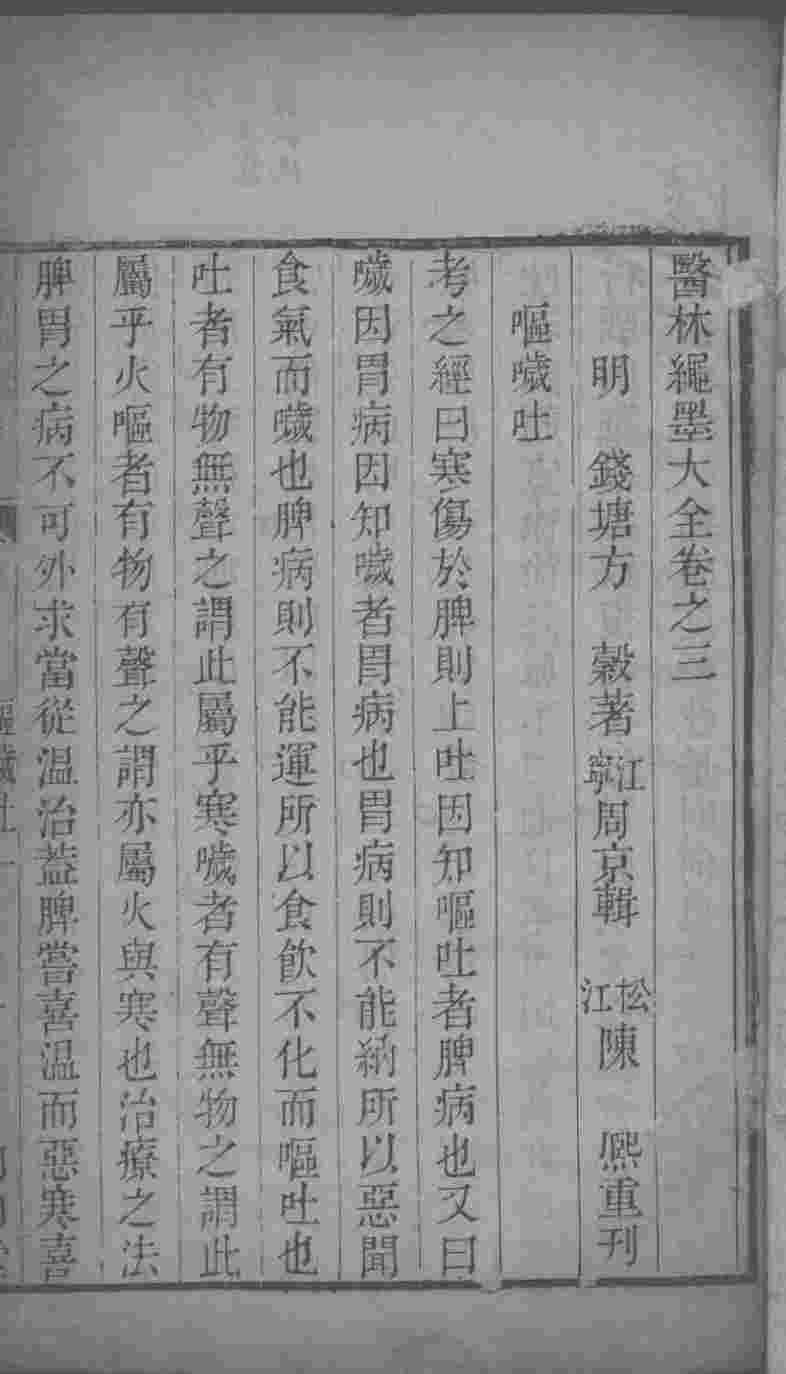 醫林繩墨大全卷之三
明 錢塘方 穀著 江寧周京輯 松江陳 熈重刊
嘔噦吐
考之經曰寒傷於脾則上吐因知嘔吐者脾病也又曰
噦因胃病因知噦者胃病也胃病則不能納所以惡聞
食氣而噦也脾病則不能運所以食飲不化而嘔吐也
吐者有物無聲之謂此屬乎寒噦者有聲無物之謂此
屬乎火嘔者有物有聲之謂亦屬火與寒也治療之法
脾胃之病不可外求當從温治葢脾嘗喜温而惡寒喜
嘔噦吐 一